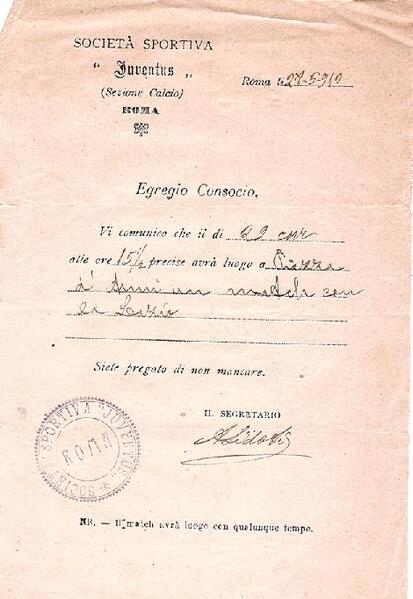 SOCIETÀ SPORTIVA
" Juventus „
(Sezione Calcio)
ROMA
Roma li 27-5-910
Egregio Consocio,
Vi comunico che il dì 29 corr
alle ore 15½ precise avrà luogo a Piazza
d'Armi un match con
la Lazio
Siete pregato di non mancare.
IL SEGRETARIO
SOCIETÀ SPORTIVA "JUVENTUS"
ROMA
NB. — Il match avrà luogo con qualunque tempo.